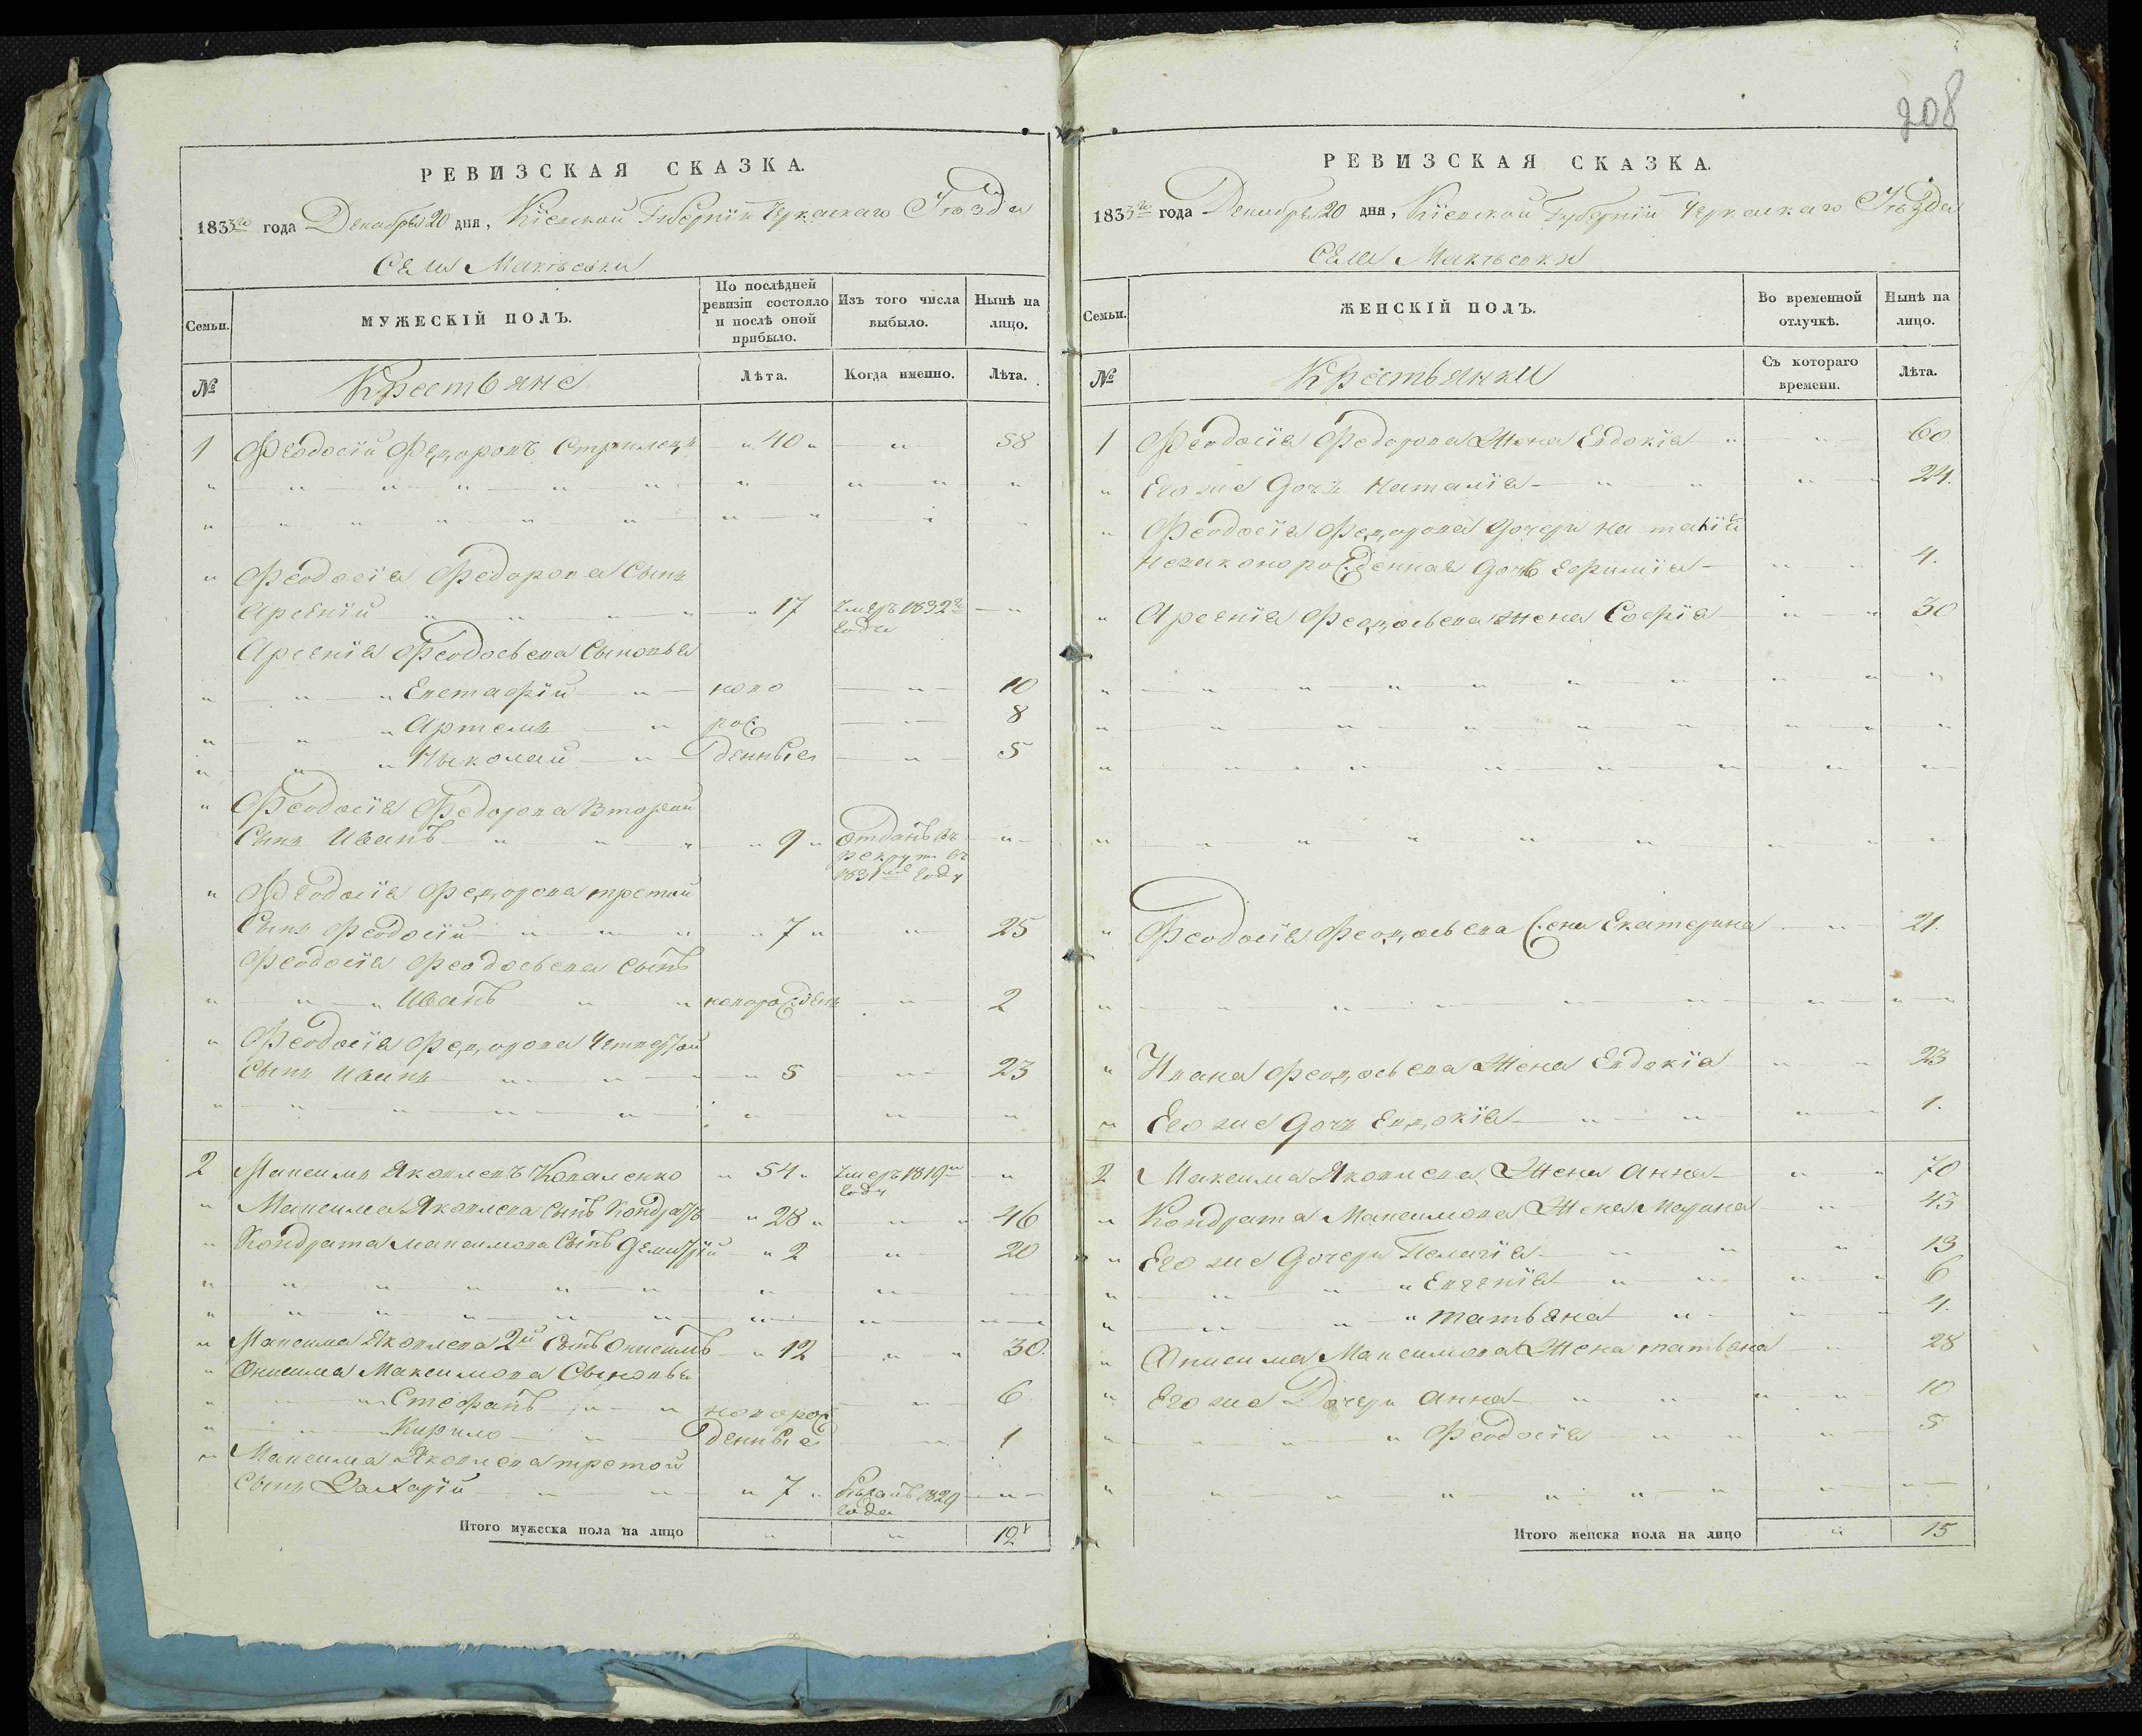 208
РЕВИЗСКАЯ СКАЗКА.
1833го года Декабря 20 дня, Кіевской Губерніи Черкаскаго Уѣзда
Села Макѣевки
Семьи.
МУЖЕСКІЙ ПОЛЪ.
По послѣдней ревизіи состояло и послѣ оной прибыло.
Изъ того числа выбыло.
Нынѣ на лицо.
№
Крестьяне
Лѣта.
Когда именно.
Лѣта.
1 Феодосій Федоровъ Стрилецъ " 40 " " 58
" Феодосія Федорова Сынъ
Арсеній " 17 Умеръ 1832го года "
Арсенія Феодосьева Сыновья
" " Евстафій " ново " 10
" " Артемъ " рож " 8
" " Николай " денные " 5
" Феодосія Федорова Вторый
Сынъ Иванъ " 9 " Отданъ въ рекруты въ 1831м году "
" Феодосія Федорова третій
Сынъ Феодосій " 7 " " 25
Феодосія Феодосьева Сынъ
" " Иванъ " новорожденъ " 2
" Феодосія Федорова Четвертый
Сынъ Иванъ " 5 " 23
2 Максимъ Яковлевъ Коваленко " 54 " Умеръ 1819м году "
" Максима Яковлева Сынъ Кондратъ " 28 " " 46
" Кондрата Максимова Сынъ Демитрій " 2 " 20
" Максима Яковлева 2й Сынъ Онисимъ " 12 " 30.
" Онисима Максимова Сыновья
" " Стефанъ " новорож " 6
" " Кирило " денные " 1
" Максима Яковлева третій
Сынъ Захарій " 7 " Бѣжалъ 1829 года "
Итого мужеска пола на лицо " " 12
РЕВИЗСКАЯ СКАЗКА.
1833го года Декабря 20 дня, Кіевской Губерніи Черкаскаго Уѣзда
Села Макѣевки
Семьи.
ЖЕНСКІЙ ПОЛЪ.
Во временной отлучкѣ.
Нынѣ на лицо.
№
Крестьянки
Съ котораго времени.
Лѣта.
1 Феодосія Федорова Жена Евдокія " " 60.
" Его же Дочь Наталія " " 24.
" Феодосія Федорова Дочери Наталіи
незаконорожденная Дочь Ефимія " " 4.
" Арсенія Феодосьева жена Софія " " 30
" Феодосія Феодосьева Жена Екатерина " 21.
" Ивана Феодосьева Жена Евдокія " " 23
" Его же Дочь Евдокія " " 1.
2 Максима Яковлева Жена Анна " " 70
" Кондрата Максимова Жена Марина " 43
" Его же Дочери Пелагія " " 13
" " Евгенія " " 6
" " Татьяна " " 4.
" Онисима Максимова Жена Татьяна " 28
" Его же Дочери Анна " " 10
" " Феодосія " " 5
Итого женска пола на лицо " 15